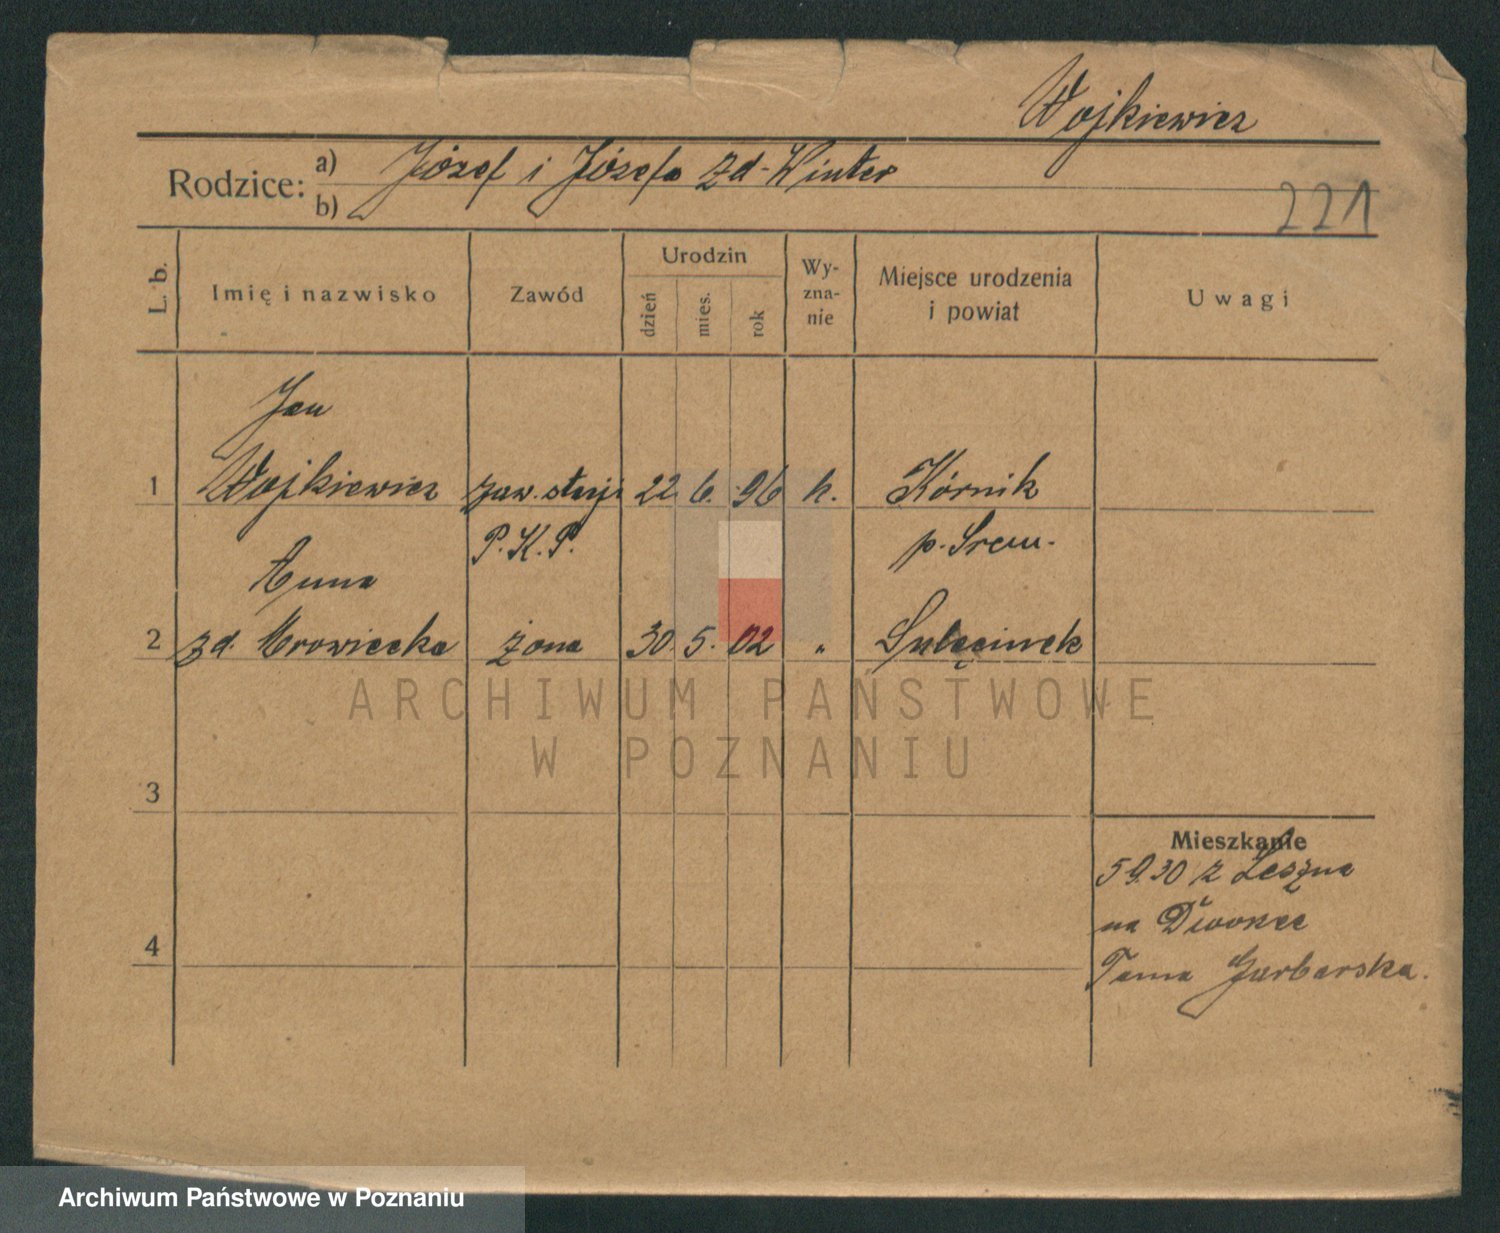 Wojkiewicz
Rodzice: a) Józef i Józefa zd. Winter
b)
221
L. b.
Imię i nazwisko
Zawód
Urodzin
dzień
mies.
rok
Wy-
zna-
nie
Miejsce urodzenia
i powiat
Uwagi
Jan
1 Wojkiewicz zaw. stacji 22. 6. 96 k. Kórnik
P. K. P. p. Śrem.
Anna
2 zd. Mrowiecka żona 30. 5. 02 „ Sulęcinek
ARCHIWUM PAŃSTWOWE
W POZNANIU
3
Mieszkanie
5 9. 30 z Leszna
na Dworzec
4
Tama Garbarska.
Archiwum Państwowe w Poznaniu